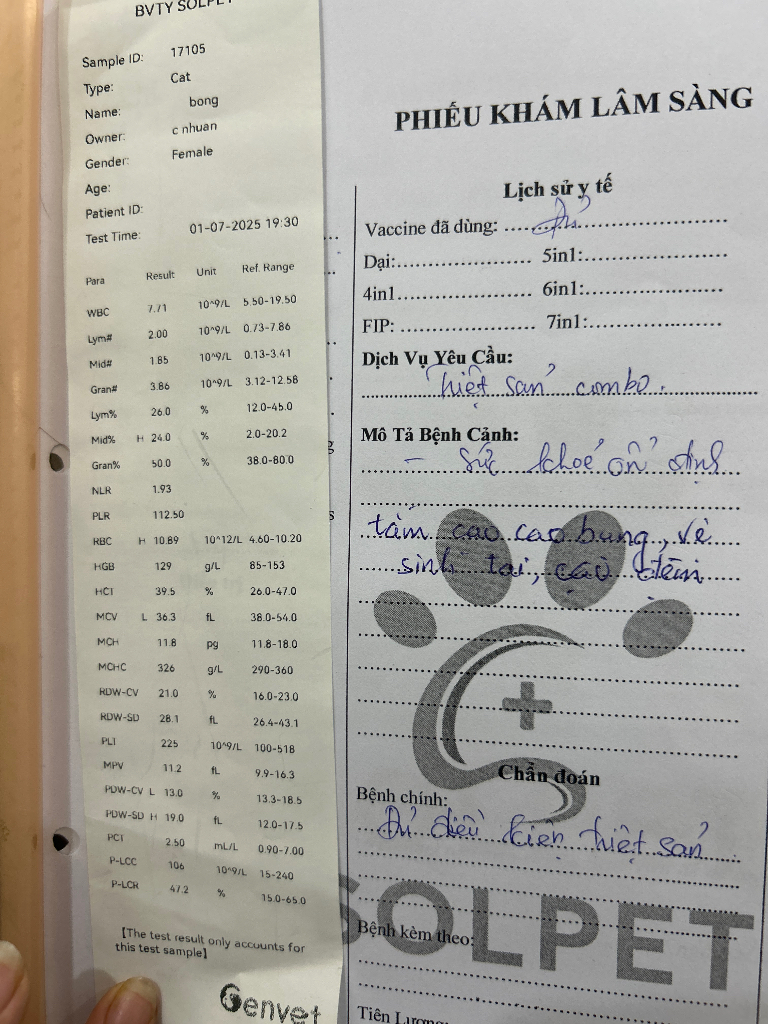 BVTY SOLPET
Sample ID: 17105
Type: Cat
Name: bong
Owner: c nhuan
Gender: Female
Age:
Patient ID:
Test Time: 01-07-2025 19:30
Para Result Unit Ref. Range
WBC 7.71 10^9/L 5.50-19.50
Lym# 2.00 10^9/L 0.73-7.86
Mid# 1.85 10^9/L 0.13-3.41
Gran# 3.86 10^9/L 3.12-12.58
Lym% 26.0 % 12.0-45.0
Mid% H 24.0 % 2.0-20.2
Gran% 50.0 % 38.0-80.0
NLR 1.93
PLR 112.50
RBC H 10.89 10^12/L 4.60-10.20
HGB 129 g/L 85-153
HCT 39.5 % 26.0-47.0
MCV L 36.3 fL 38.0-54.0
MCH 11.8 pg 11.8-18.0
MCHC 326 g/L 290-360
RDW-CV 21.0 % 16.0-23.0
RDW-SD 28.1 fL 26.4-43.1
PLT 225 10^9/L 100-518
MPV 11.2 fL 9.9-16.3
PDW-CV L 13.0 % 13.3-18.5
PDW-SD H 19.0 fL 12.0-17.5
PCT 2.50 mL/L 0.90-7.00
P-LCC 106 10^9/L 15-240
P-LCR 47.2 % 15.0-65.0
[The test result only accounts for
this test sample]
Genvet
PHIẾU KHÁM LÂM SÀNG
Lịch sử y tế
Vaccine đã dùng: Đủ
Dại: 5in1:
4in1 6in1:
FIP: 7in1:
Dịch Vụ Yêu Cầu:
Triệt sản combo.
Mô Tả Bệnh Cảnh:
- Sức khoẻ ổn định
tắm cạo cạo bụng, vệ
sinh tai, cạo đệm
Chẩn đoán
Bệnh chính:
Đủ điều kiện triệt sản
SOLPET
Bệnh kèm theo:
Tiên Lượng